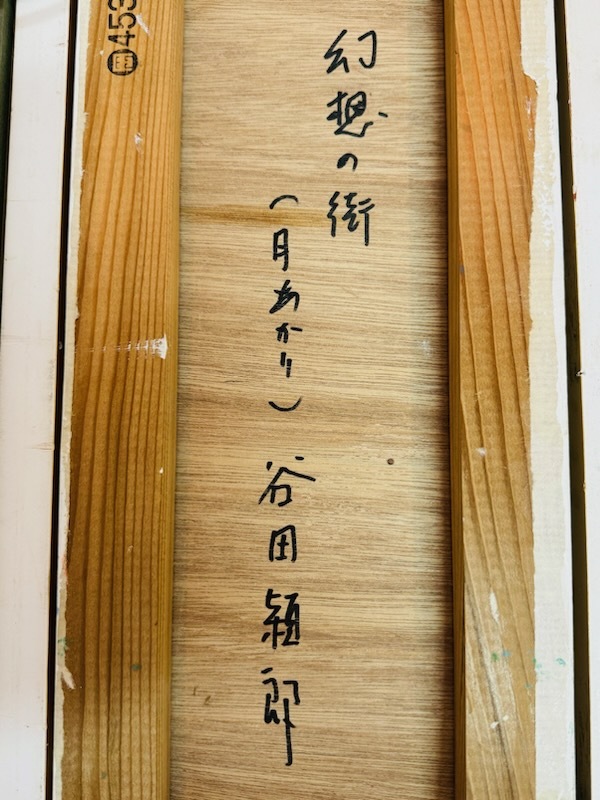 幻想の街
(月あかり) 谷田穎郎
453